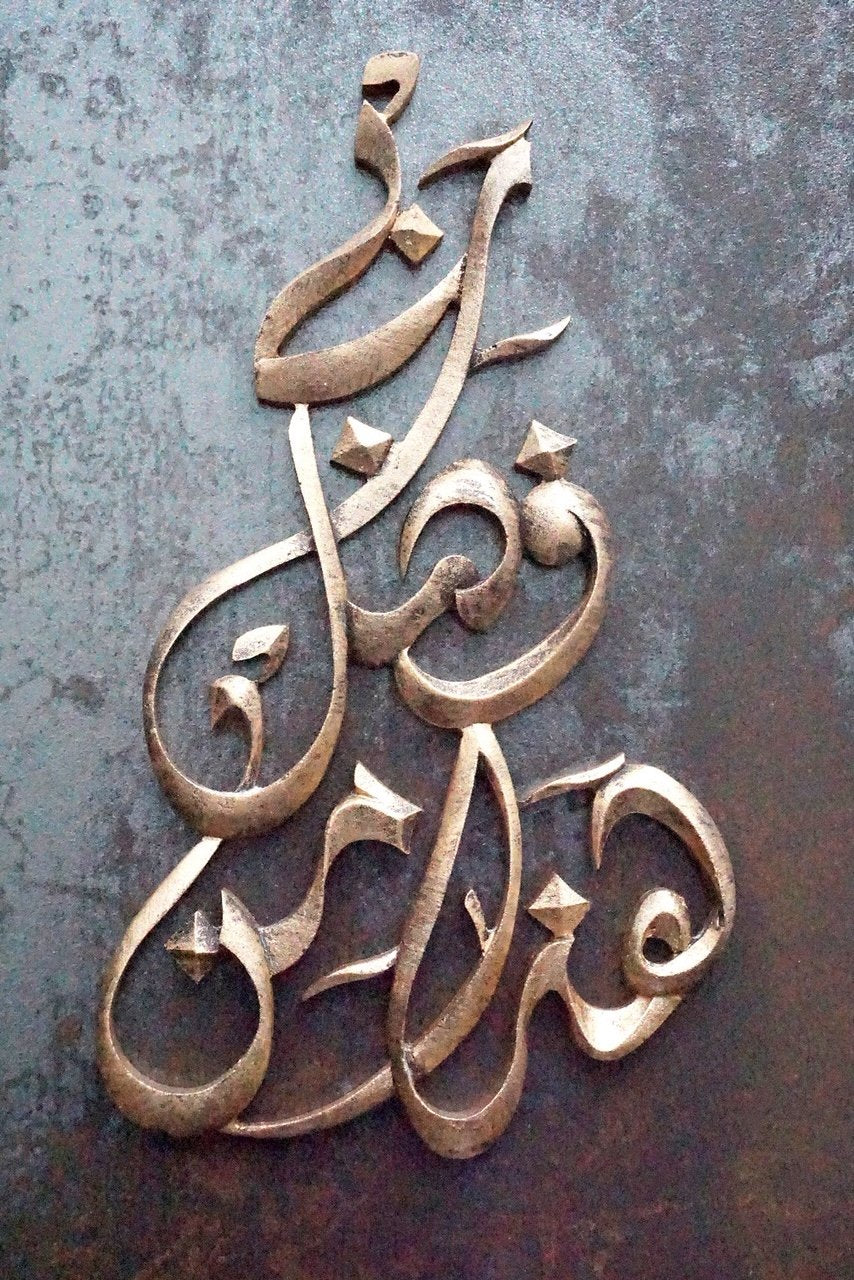 هذا من
فضل
ربي